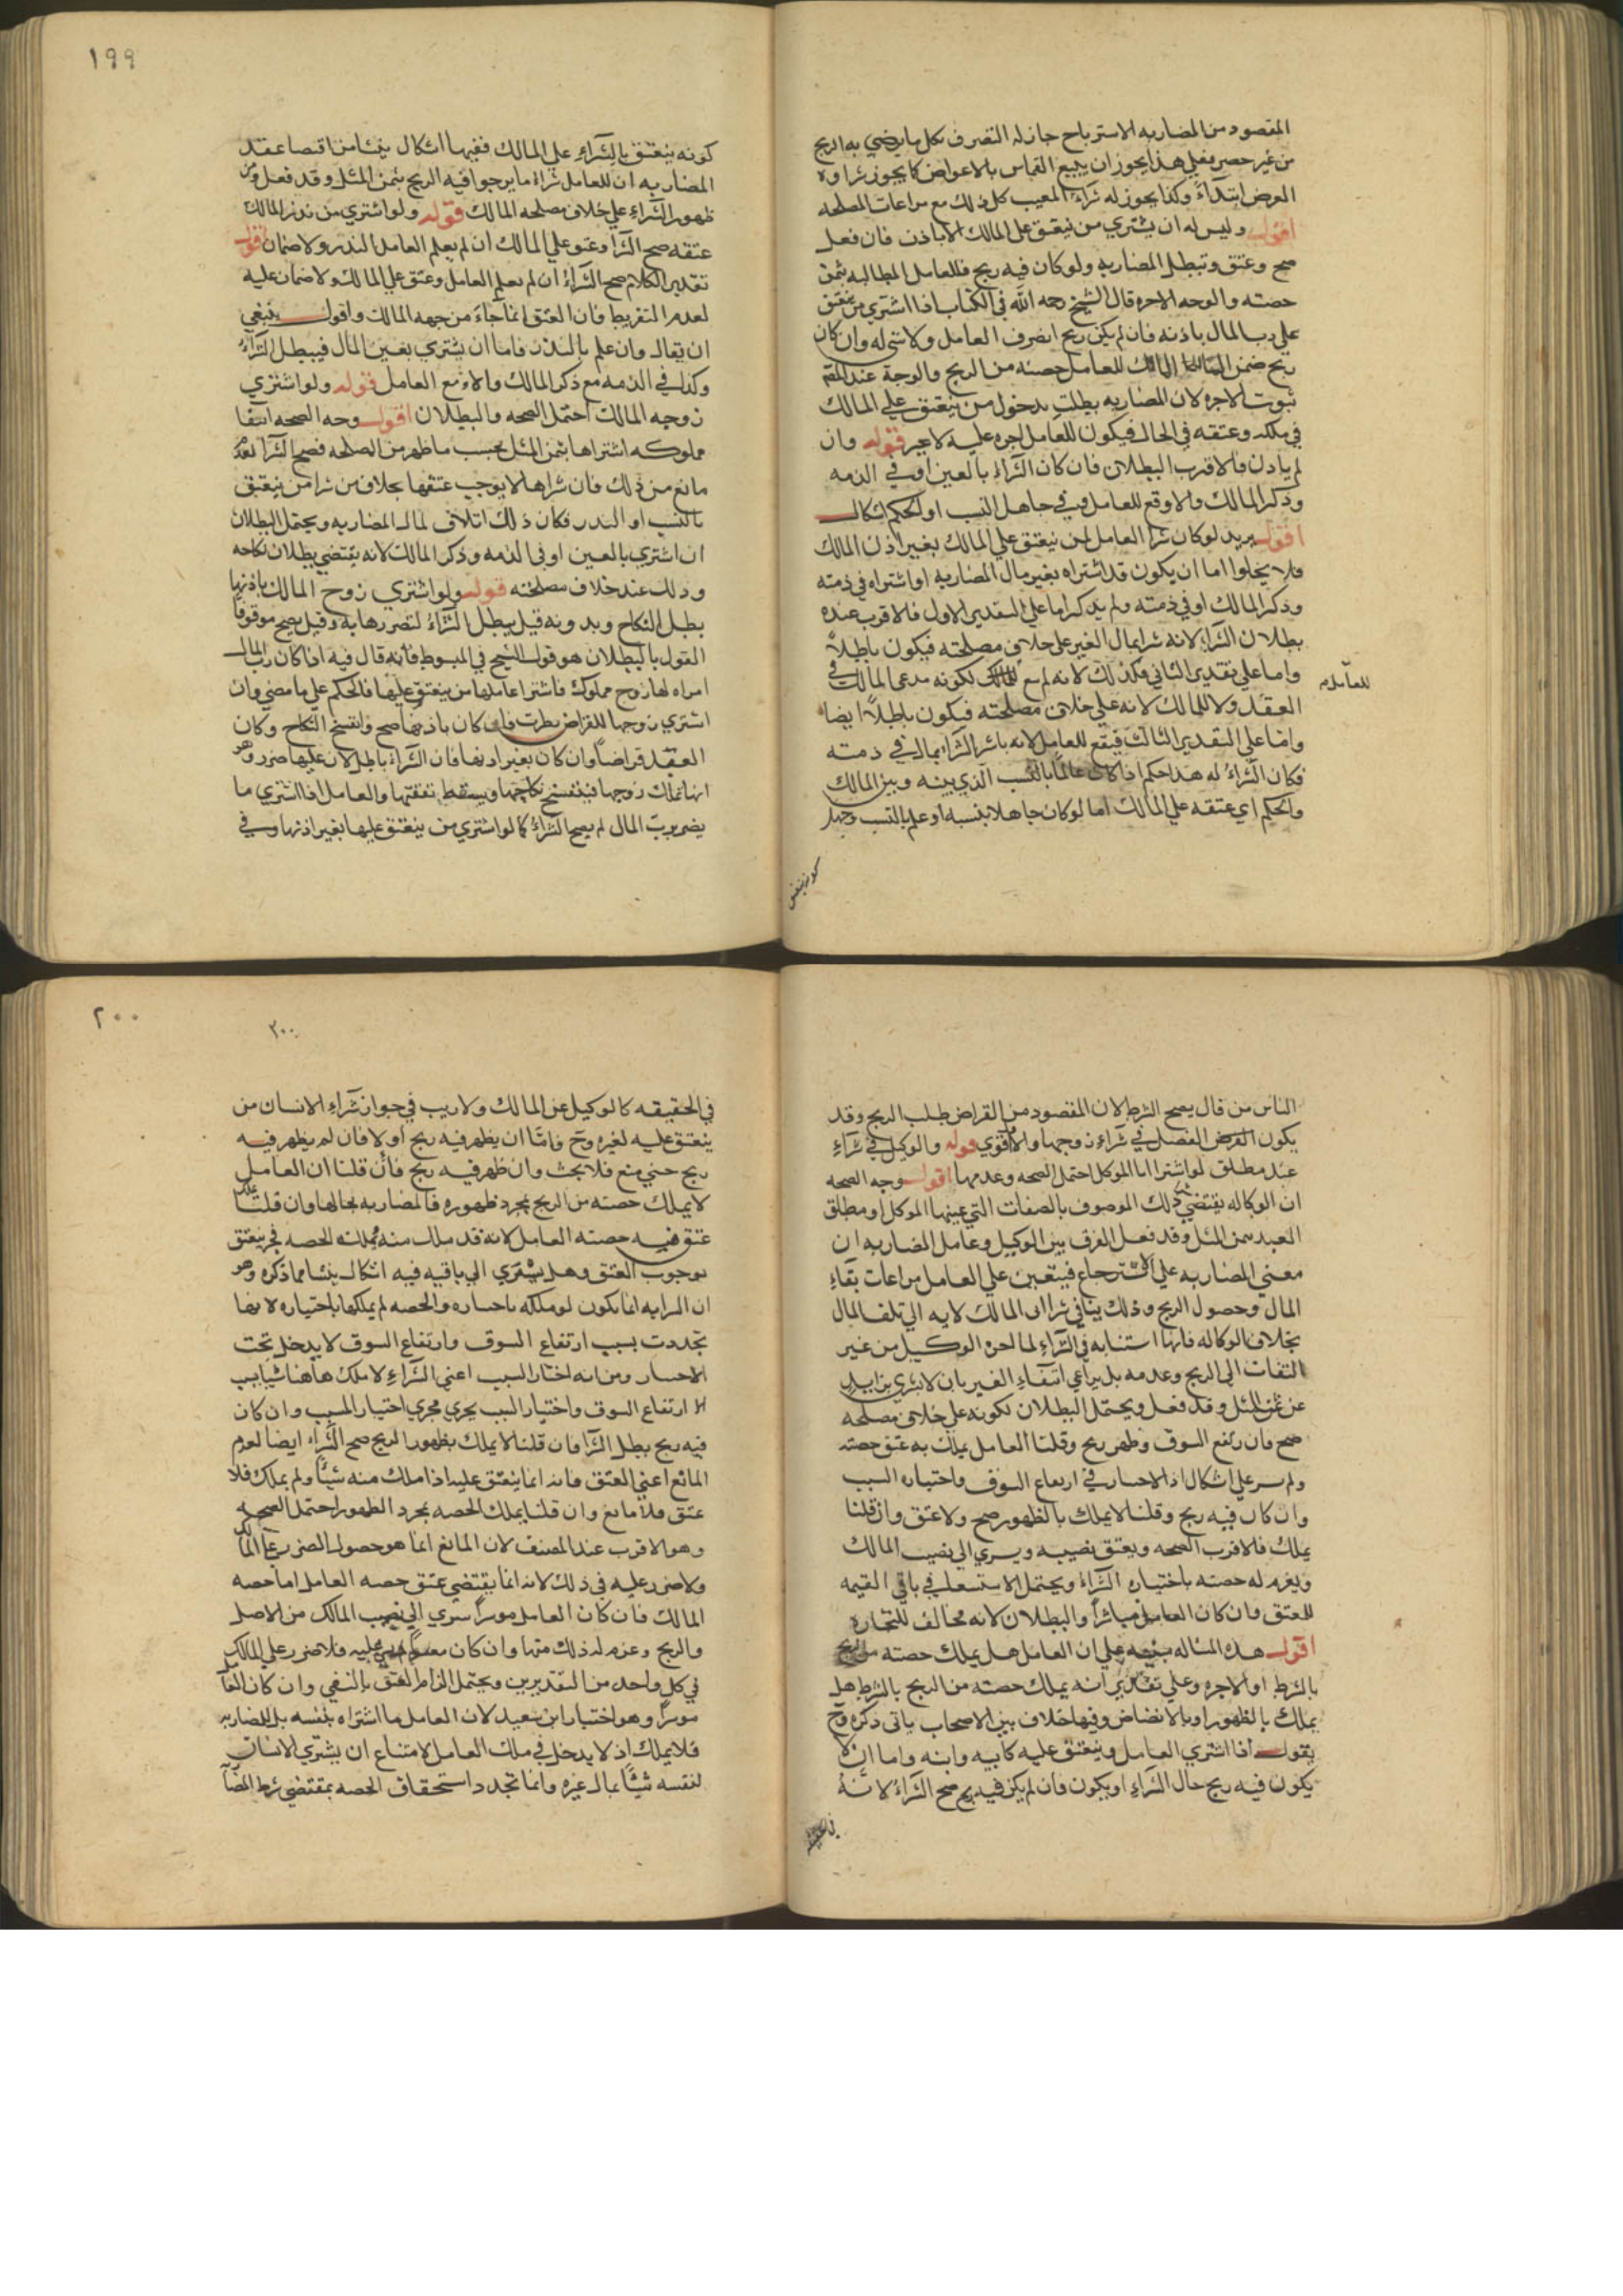 المقصود من المضاربه الاسترباح جاز له التصرف بكل ما يرضي به الربح
من غير حصر فعلي هذا يجوز ان يبيع القماس بالاعواض كما يجوز شراوه
العرض ابتداءً وكذا يجوز له شراء المعيب كل ذلك مع مراعات المصلحه
اقول وليس له ان يشتري من ينعتق علي المالك الا باذن فان فعل
صح وعتق وتبطل المضاربه ولو كان فيه ربح فللعامل المطالبه بثمن
حصته والوجه الاجره قال الشيخ رحمه الله في الكتاب اذا اشتري من ينعتق
علي رب المال باذنه فان لم يكن ربح انصرف العامل ولا شي له وان كان
ربح ضمن المالك للعامل حصته من الربح والوجه عند المصنف
ثبوت الاجره لان المضاربه بطلت بدخول من ينعتق علي المالك
في ملكه وعتقه في الحال فيكون للعامل اجره عليه لا غير قوله وان
لم ياذن فالاقرب البطلان فان كان الشراء بالعين او في الذمه
وذكر المالك والا وقع للعامل وفي جاهل النسب او الحكم اشكال
اقول يريد لو كان شرا العامل لمن ينعتق علي المالك بغير اذن المالك
فلا يخلوا اما ان يكون قد اشتراه بغير مال المضاربه او اشتراه في ذمته
وذكر المالك او في ذمته ولم يذكر اما علي التقدير الاول فالاقرب عنده
بطلان الشراء لانه شرا بمال الغير علي خلاف مصلحته فيكون باطلاً
واما علي تقدير الثاني فكذلك لانه لم يقع لكونه مدعي المالك في
للعامل
العقد ولا للمالك لانه علي خلاف مصلحته فيكون باطلاً ايضا
واما علي التقدير الثالث فيقع للعامل لانه باشر الشرا بمال في ذمته
فكان الشراءُ له هذا حكم اذا كان عالماً بالنسب الذي بينه وبين المالك
والحكم اي عتقه علي المالك اما لو كان جاهلا بنسبه او علم بالنسب وجهل
كونه ينعتق
١٩٩
كونه ينعتق بالشراءِ علي المالك ففيها اشكال ينشا من اقتضا عقد
المضاربه ان للعامل شراء ما يرجوا فيه الربح بثمن المثل وقد فعل ومن
ظهور الشراءِ علي خلاف مصلحه المالك قوله ولو اشتري من نذر المالك
عتقه صح الشرا وعتق علي المالك ان لم يعلم العامل النذر ولا ضمان اقول
تقدير الكلام صح الشراءُ ان لم يعلم العامل وعتق علي المالك ولا ضمان عليه
لعدم التفريط فان العتق انما جاءَ من جهه المالك واقول ينبغي
ان يقال وان علم بالنذر فاما ان يشتري بعين المال فيبطل الشراءُ
وكذا في الذمه مع ذكر المالك والا وقع العامل قوله ولو اشتري
زوجه المالك احتمل الصحه والبطلان اقول وجه الصحه انها
مملوكه اشتراها بثمن المثل بحسب ما ظهر من المصلحه فصح الشرا لعدم
مانع من ذلك فان شراها لا يوجب عتقها بخلاف من شرا من ينعتق
بالنسب او النذر فكان ذلك اتلاف لمال المضاربه ويحتمل البطلان
ان اشتري بالعين او في الذمه وذكر المالك لانه يقتضي بطلان نكاحه
وذلك عند خلاف مصلحته قوله ولو اشتري زوج المالك باذنها
بطل النكاح وبدونه قيل يبطل الشراءُ لتضررها به وقيل يصح موقوفا
القول بالبطلان هو قول الشيخ في المبسوط فانه قال فيه اذا كان رب المال
امراه لها زوج مملوك فاشترا عاملها من ينعتق عليها فالحكم علي ما مضي وان
اشتري زوجها للقراض نظرت فان كان باذنها صح وانفسخ النكاح وكان
العقد قراضاً وان كان بغير اذنها فان الشراءَ باطل لان عليها ضرر وهو
انها تملك زوجها فينفسخ نكاحها ويسقط نفقتها والعامل اذا اشتري ما
يضر برب المال لم يصح الشراءُ كما لو اشتري من ينعتق عليها بغير اذنها وفي
الناس من قال يصح الشرط لان المقصود من القراض طلب الربح وقد
يكون الغرض الفضل في شراءِ زوجها والاقوي قوله والوكيل في شراءِ
عبد مطلق لو اشترا ابا الموكل احتمل الصحه وعدمها اقول وجه الصحه
ان الوكاله يقتضي ذلك الموصوف بالصفات التي عينها الموكل او مطلق
العبد بثمن المثل وقد فعل الفرق بين الوكيل وعامل المضاربه ان
معني المضاربه علي الاسترباح فيتعين علي العامل مراعات بقاءِ
المال وحصول الربح وذلك ينافي شرا اب المالك لانه الي تلف المال
بخلاف الوكاله فانها استنابه في الشراءِ لمالحره الوكيل من غير
التفات الي الربح وعدمه بل يراعي انتفاءِ الغبن بان لا يشتري بزايد
عن ثمن المثل وقد فعل ويحتمل البطلان لكونه علي خلاف مصلحه
صح فان رتفع السوق وظهر ربح وقلنا العامل يملك به عتق حصته
ولم يسر علي اشكال اذ لا اختيار في ارتفاع السوق واختياره السبب
وان كان فيه ربح وقلنا لا يملك بالظهور صح ولا عتق وان قلنا
يملك فالاقرب الصحه ويعتق نصيبه ويسري الي نصيب المالك
ويغرم له حصته باختياره الشراءُ ويحتمل الاستسعا في باقي القيمه
للعتق وان كان العامل مباشراً والبطلان لانه مخالف للتجاره
اقول هذه المساله مبنيه علي ان العامل هل يملك حصته من الربح
بالشرط او الاجره وعلي تقدير انه يملك حصته من الربح بالشرط هل
يملك بالظهور او بالانضاض وفيها خلاف بين الاصحاب ياتي ذكره وح
يقول اذا اشتري العامل وينعتق عليه كابيه وابنه واما ان لا
يكون فيه ربح حال الشراءِ او يكون فان لم يكن فيه ربح صح الشراءُ لانه
٢٠٠
٢٠٠
في الحقيقه كالوكيل عن المالك ولا ريب في جواز شراءِ الانسان من
ينعتق عليه لغيره وح فامّا ان يظهر فيه ربح او لا فان لم يظهر فيه
ربح حتي بيع فلا بحث وان ظهر فيه ربح فان قلنا ان العامل
لا يملك حصته من الربح بمجرد ظهوره فالمضاربه بحالها وان قلنا يملك
عتق فيه حصته العامل لانه قد ملك منه تملك الحصه فح ينعتق
لوجوب العتق وهل يسري الي باقيه فيه اشكال ينشا مما ذكره وهو
ان السرايه انما يكون لو ملكه باختياره والحصه لم يملكها باختياره لانها
تجددت بسبب ارتفاع السوق وارتفاع السوق لا يدخل تحت
الاختيار ومن انه اختار السبب اعني الشراءِ لا ملك هاهنا شيا بسبب
الا ارتفاع السوق واختيار السبب يجري مجري اختيار المسبب وان كان
فيه ربح بطل الشرا فان قلنا لا يملك بظهور الربح صح الشراء ايضا لعدم
المانع اعني العتق فانه انما ينعتق عليه اذا ملك منه شيئاً ولم يملك فلا
عتق فلا مانع وان قلنا يملك الحصه بمجرد الظهور احتمل الصحه
وهو الاقرب عند المصنف لان المانع انما هو حصول الضرر علي المالك
ولا ضرر عليه في ذلك لانه انما يقتضي عتق حصه العامل اما حصه
المالك فان كان العامل موسراً سري الي نصيب المالك من الاصل
والربح وغرم له ذلك منها وان كان معسراً عليه فلا ضرر علي المالك
في كل واحد من التقديرين ويحتمل الزام العتق بالنفي وان كان العامل
موسراً وهو اختيار ابن سعيد لان العامل ما اشتراه بنفسه بل للمضاربه
فلا يملك اذ لا يدخل في ملك العامل لامتناع ان يشتري الانسان
لنفسه شيئاً بمال غيره وانما تجدد استحقاق الحصه بمقتضي شرط المضا